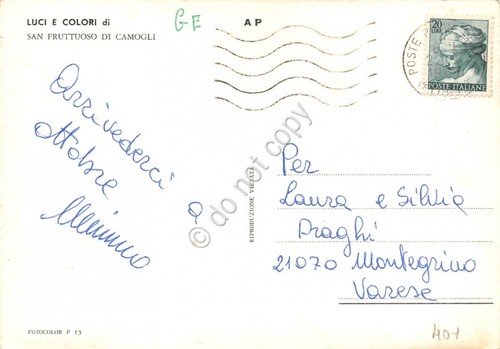 LUCI E COLORI di
SAN FRUTTUOSO DI CAMOGLI
GE
A P
POSTE
20
LIRE
POSTE ITALIANE
Arrivederci
a
ottobre
Mimmo
Per
Laura e Silvia
Draghi
21070 Montegrino
Varese
RIPRODUZIONE VIETATA
FOTOCOLOR P 15
401
do not copy